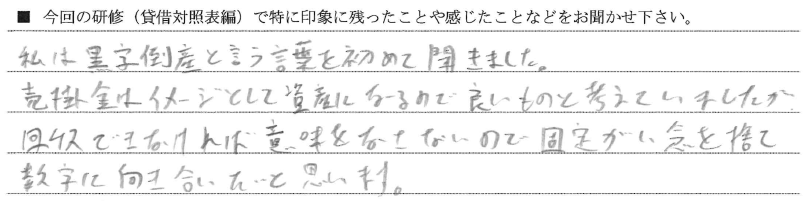 ■ 今回の研修（貸借対照表編）で特に印象に残ったことや感じたことなどをお聞かせ下さい。
私は黒字倒産と言う言葉を初めて聞きました。
売掛金はイメージとして資産になるので良いものと考えていましたが
回収できなければ意味をなさないので固定がい念を捨て
数字に向き合いたいと思います。